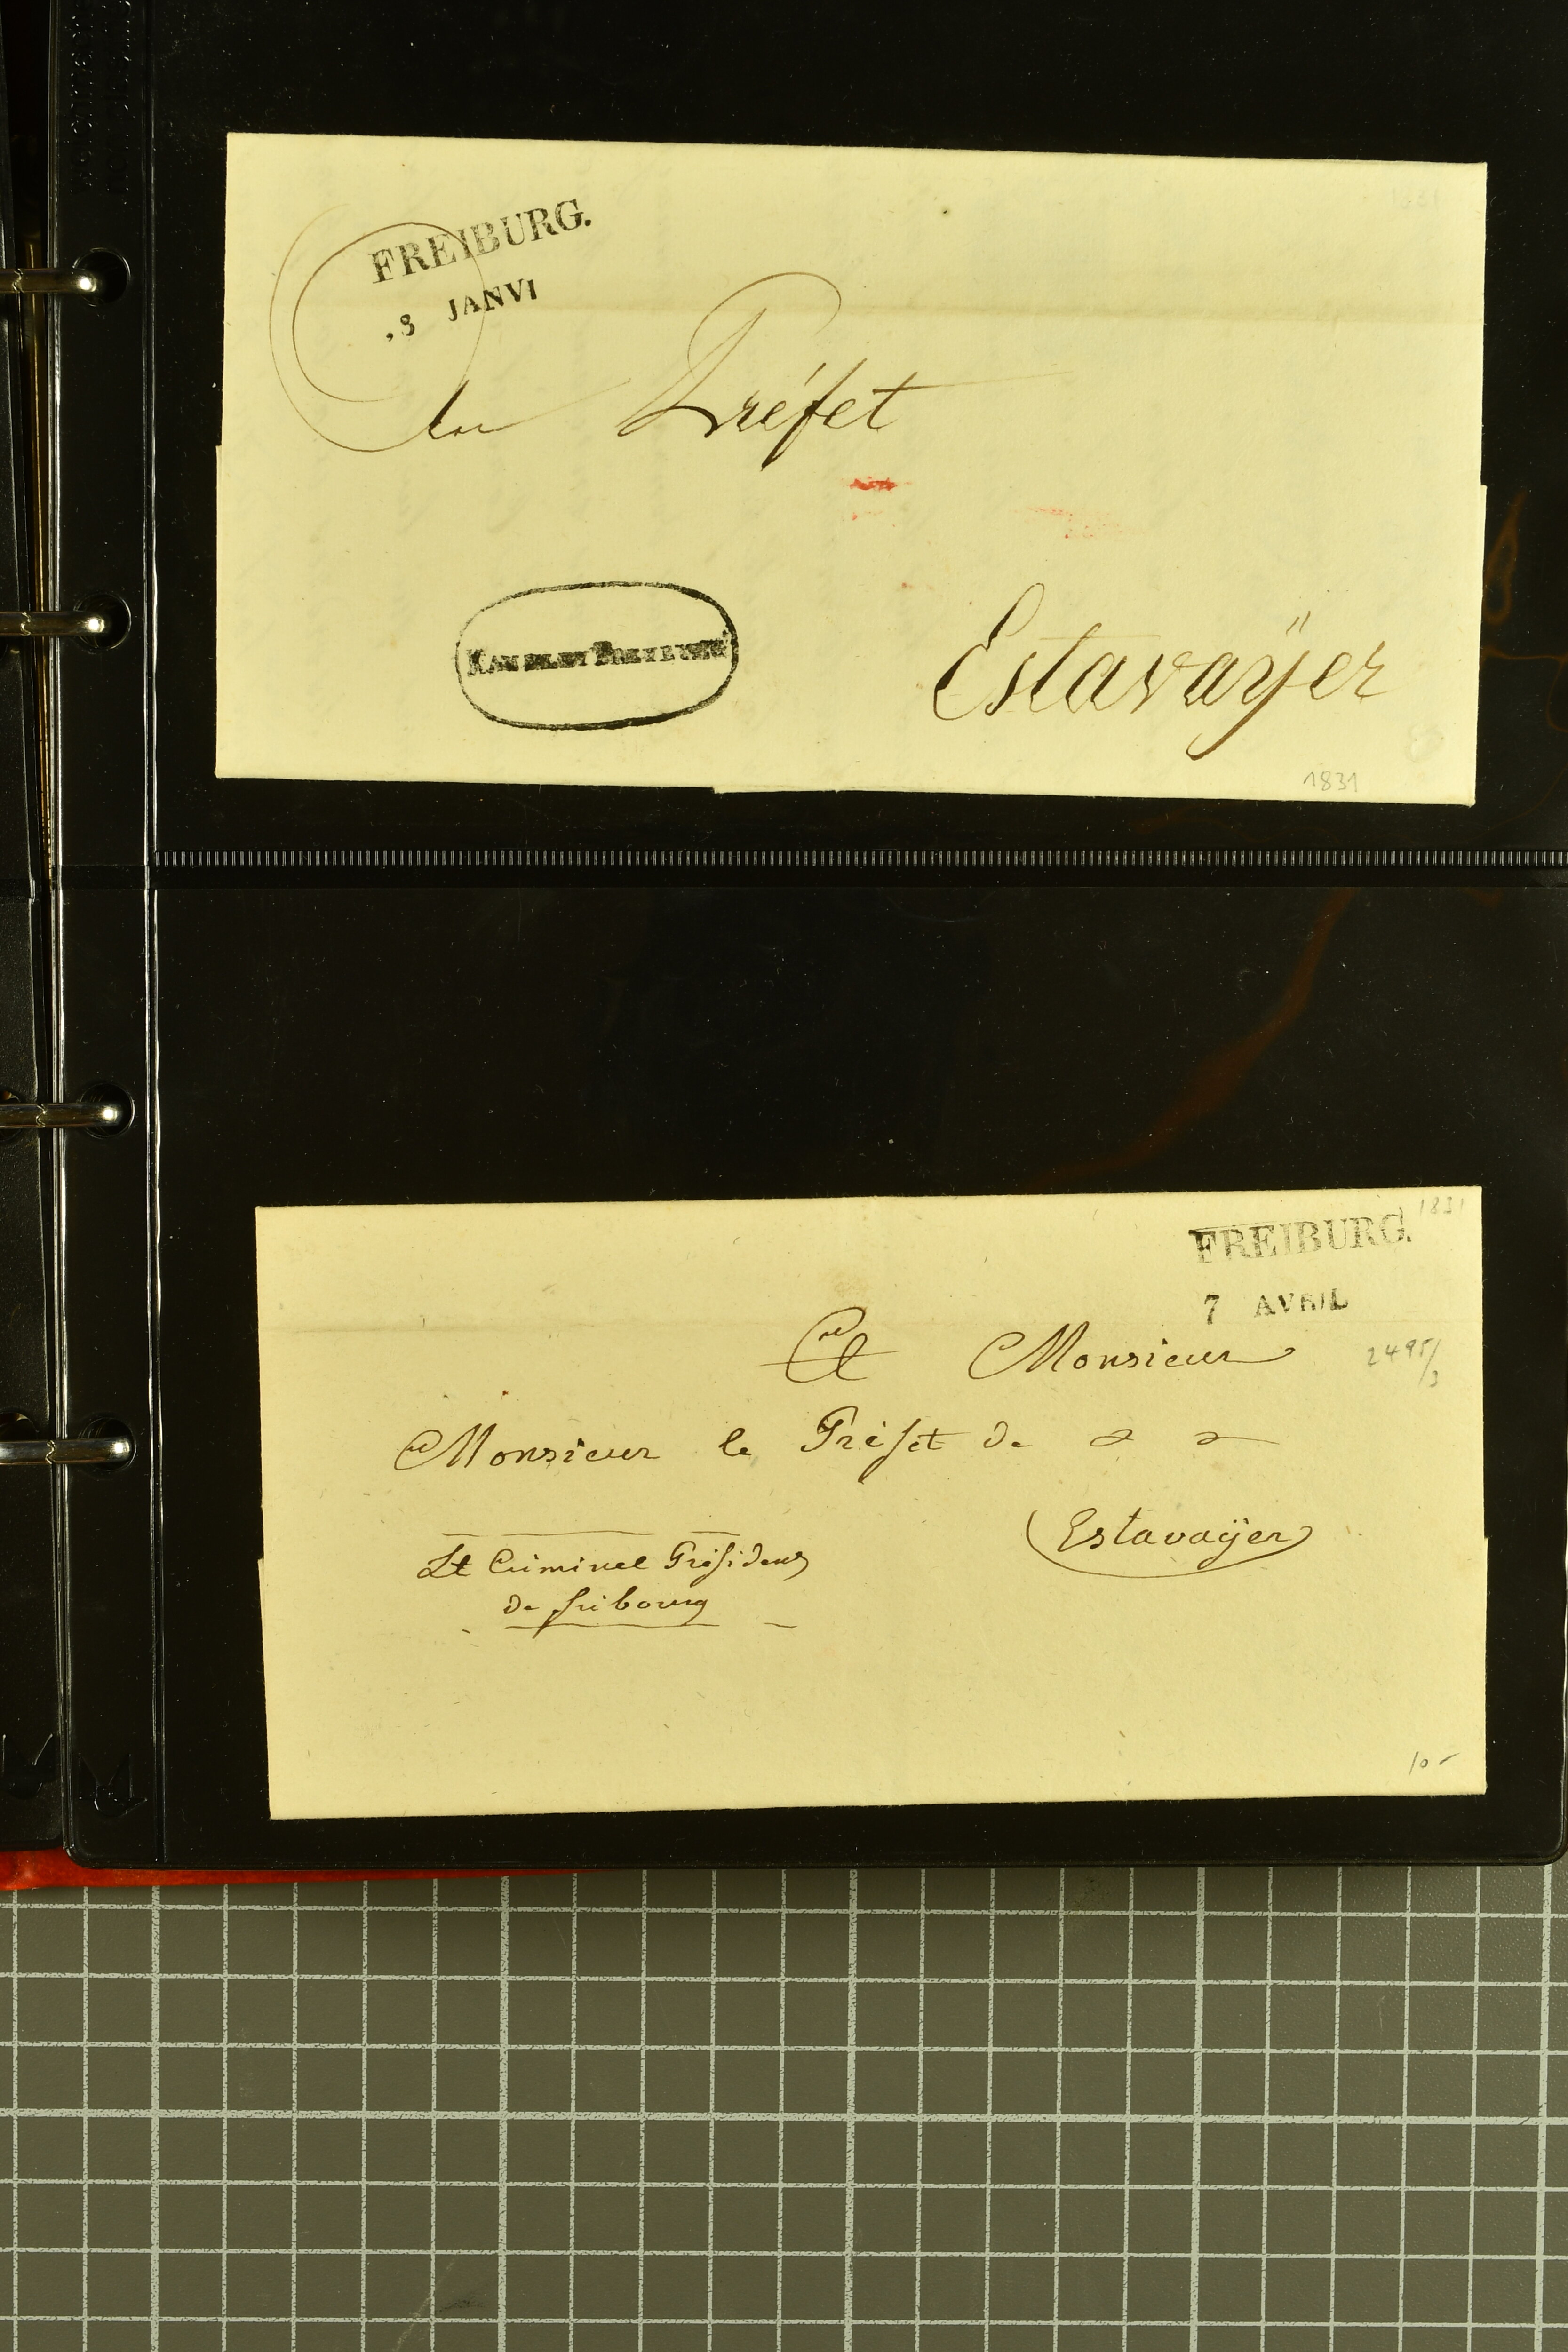 FREIBURG.
8 JANVI
Au Préfet
Estavaÿer
1831
1831
FREIBURG.
7 AVRIL
A Monsieur
2495/3
Monsieur le Préfet de
Estavaÿer
Lt Criminel Présidens
de fribourg
10-